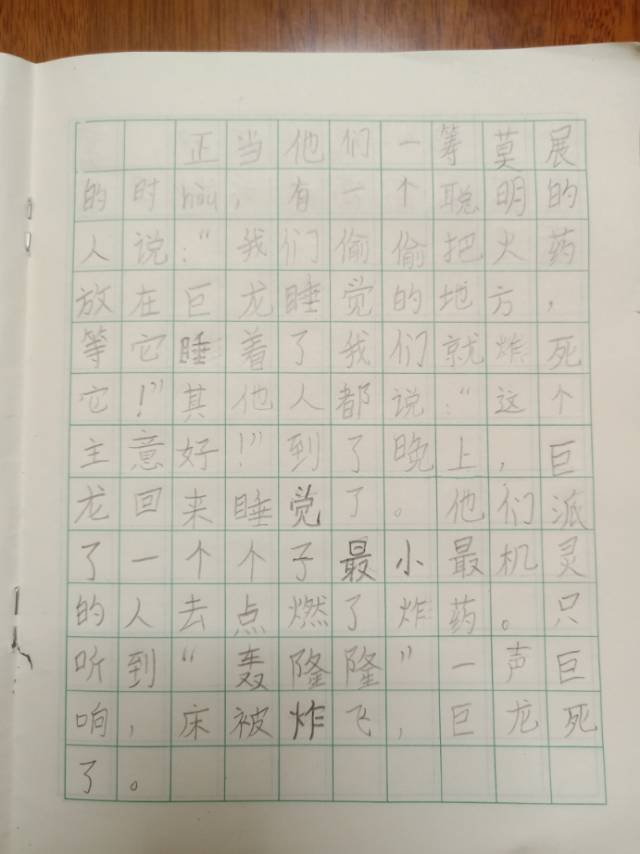 正当他们一筹莫展
的时hòu，有一个聪明的
人说：“我们偷偷把火药
放在巨龙睡觉的地方，
等它睡着了我们就炸死
它！”其他人都说：“这个
主意好！”到了晚上，巨
龙回来睡觉了。他们派
了一个个子最小最机灵
的人去点燃了炸药。只
听到“轰隆隆”一声巨
响，床被炸飞，巨龙死
了。